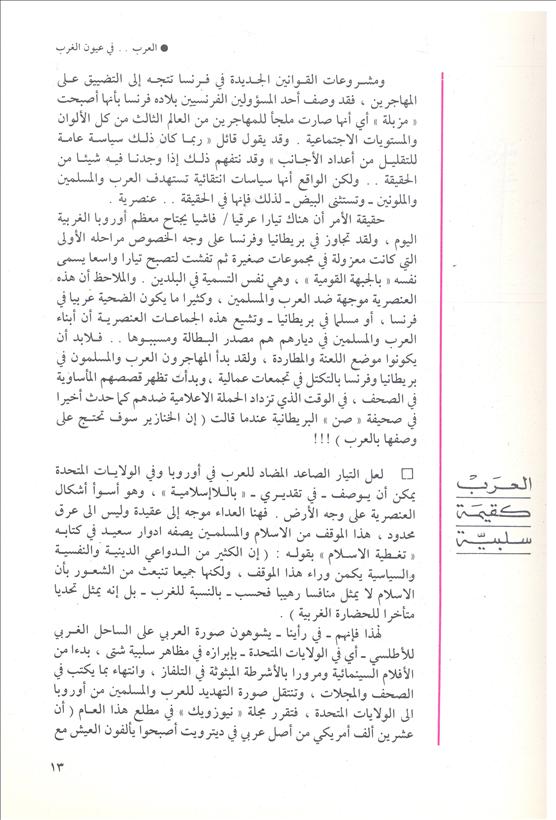 ● العرب . . في عيون الغرب
ومشروعات القوانين الجديدة في فرنسا تتجه إلى التضييق على
المهاجرين ، فقد وصف أحد المسؤولين الفرنسيين بلاده فرنسا بأنها أصبحت
« مزبلة » أي أنها صارت ملجأ للمهاجرين من العالم الثالث من كل الألوان
والمستويات الاجتماعية . وقد يقول قائل « ربما كان ذلك سياسة عامة
للتقليل من أعداد الأجانب » وقد نتفهم ذلك إذا وجدنا فيه شيئا من
الحقيقة . . ولكن الواقع أنها سياسات انتقائية تستهدف العرب والمسلمين
والملونين ـ وتستثنى البيض ـ لذلك فإنها في الحقيقة . . عنصرية .
حقيقة الأمر أن هناك تيارا عرقيا / فاشيا يجتاح معظم أوروبا الغربية
اليوم ، ولقد تجاوز في بريطانيا وفرنسا على وجه الخصوص مراحله الأولى
التي كانت معزولة في مجموعات صغيرة ثم تفشت لتصبح تيارا واسعا يسمى
نفسه « بالجبهة القومية » ، وهي نفس التسمية في البلدين . والملاحظ أن هذه
العنصرية موجهة ضد العرب والمسلمين ، وكثيرا ما يكون الضحية عربيا في
فرنسا ، أو مسلما في بريطانيا ـ وتشيع هذه الجماعات العنصرية أن أبناء
العرب والمسلمين في ديارهم هم مصدر البطالة ومسببوها . . فلابد أن
يكونوا موضع اللعنة والمطاردة ، ولقد بدأ المهاجرون العرب والمسلمون في
بريطانيا وفرنسا بالتكتل في تجمعات عمالية ، وبدأت تظهر قصصهم المأساوية
في الصحف ، في الوقت الذي تزداد الحملة الاعلامية ضدهم كما حدث أخيرا
في صحيفة « صن » البريطانية عندما قالت ( إن الخنازير سوف تحتج على
وصفها بالعرب ) !!!
□ لعل التيار الصاعد المضاد للعرب في أوروبا وفي الولايات المتحدة
يمكن أن يوصف ـ في تقديري ـ « باللاإسلامية » ، وهو أسوأ أشكال
العنصرية على وجه الأرض . فهنا العداء موجه إلى عقيدة وليس الى عرق
محدود ، هذا الموقف من الاسلام والمسلمين يصفه ادوار سعيد في كتابه
« تغطية الاسلام » بقوله : ( إن الكثير من الدواعي الدينية والنفسية
والسياسية يكمن وراء هذا الموقف ، ولكنها جميعا تنبعث من الشعور بأن
الاسلام لا يمثل منافسا رهيبا فحسب ـ بالنسبة للغرب ـ بل إنه يمثل تحديا
متأخرا للحضارة الغربية ) .
لهذا فإنهم ـ في رأينا ـ يشوهون صورة العربي على الساحل الغربي
للأطلسي ـ أي في الولايات المتحدة ـ بإبرازه في مظاهر سلبية شتى ، بدءا من
الأفلام السينمائية ومرورا بالأشرطة المبثوثة في التلفاز ، وانتهاء بما يكتب في
الصحف والمجلات ، وتنتقل صورة التهديد للعرب والمسلمين من أوروبا
الى الولايات المتحدة ، فتقرر مجلة « نيوزويك » في مطلع هذا العام ( أن
عشرين ألف أمريكي من أصل عربي في ديترويت أصبحوا يألفون العيش مع
العرب
كقيمة
سلبية
١٣